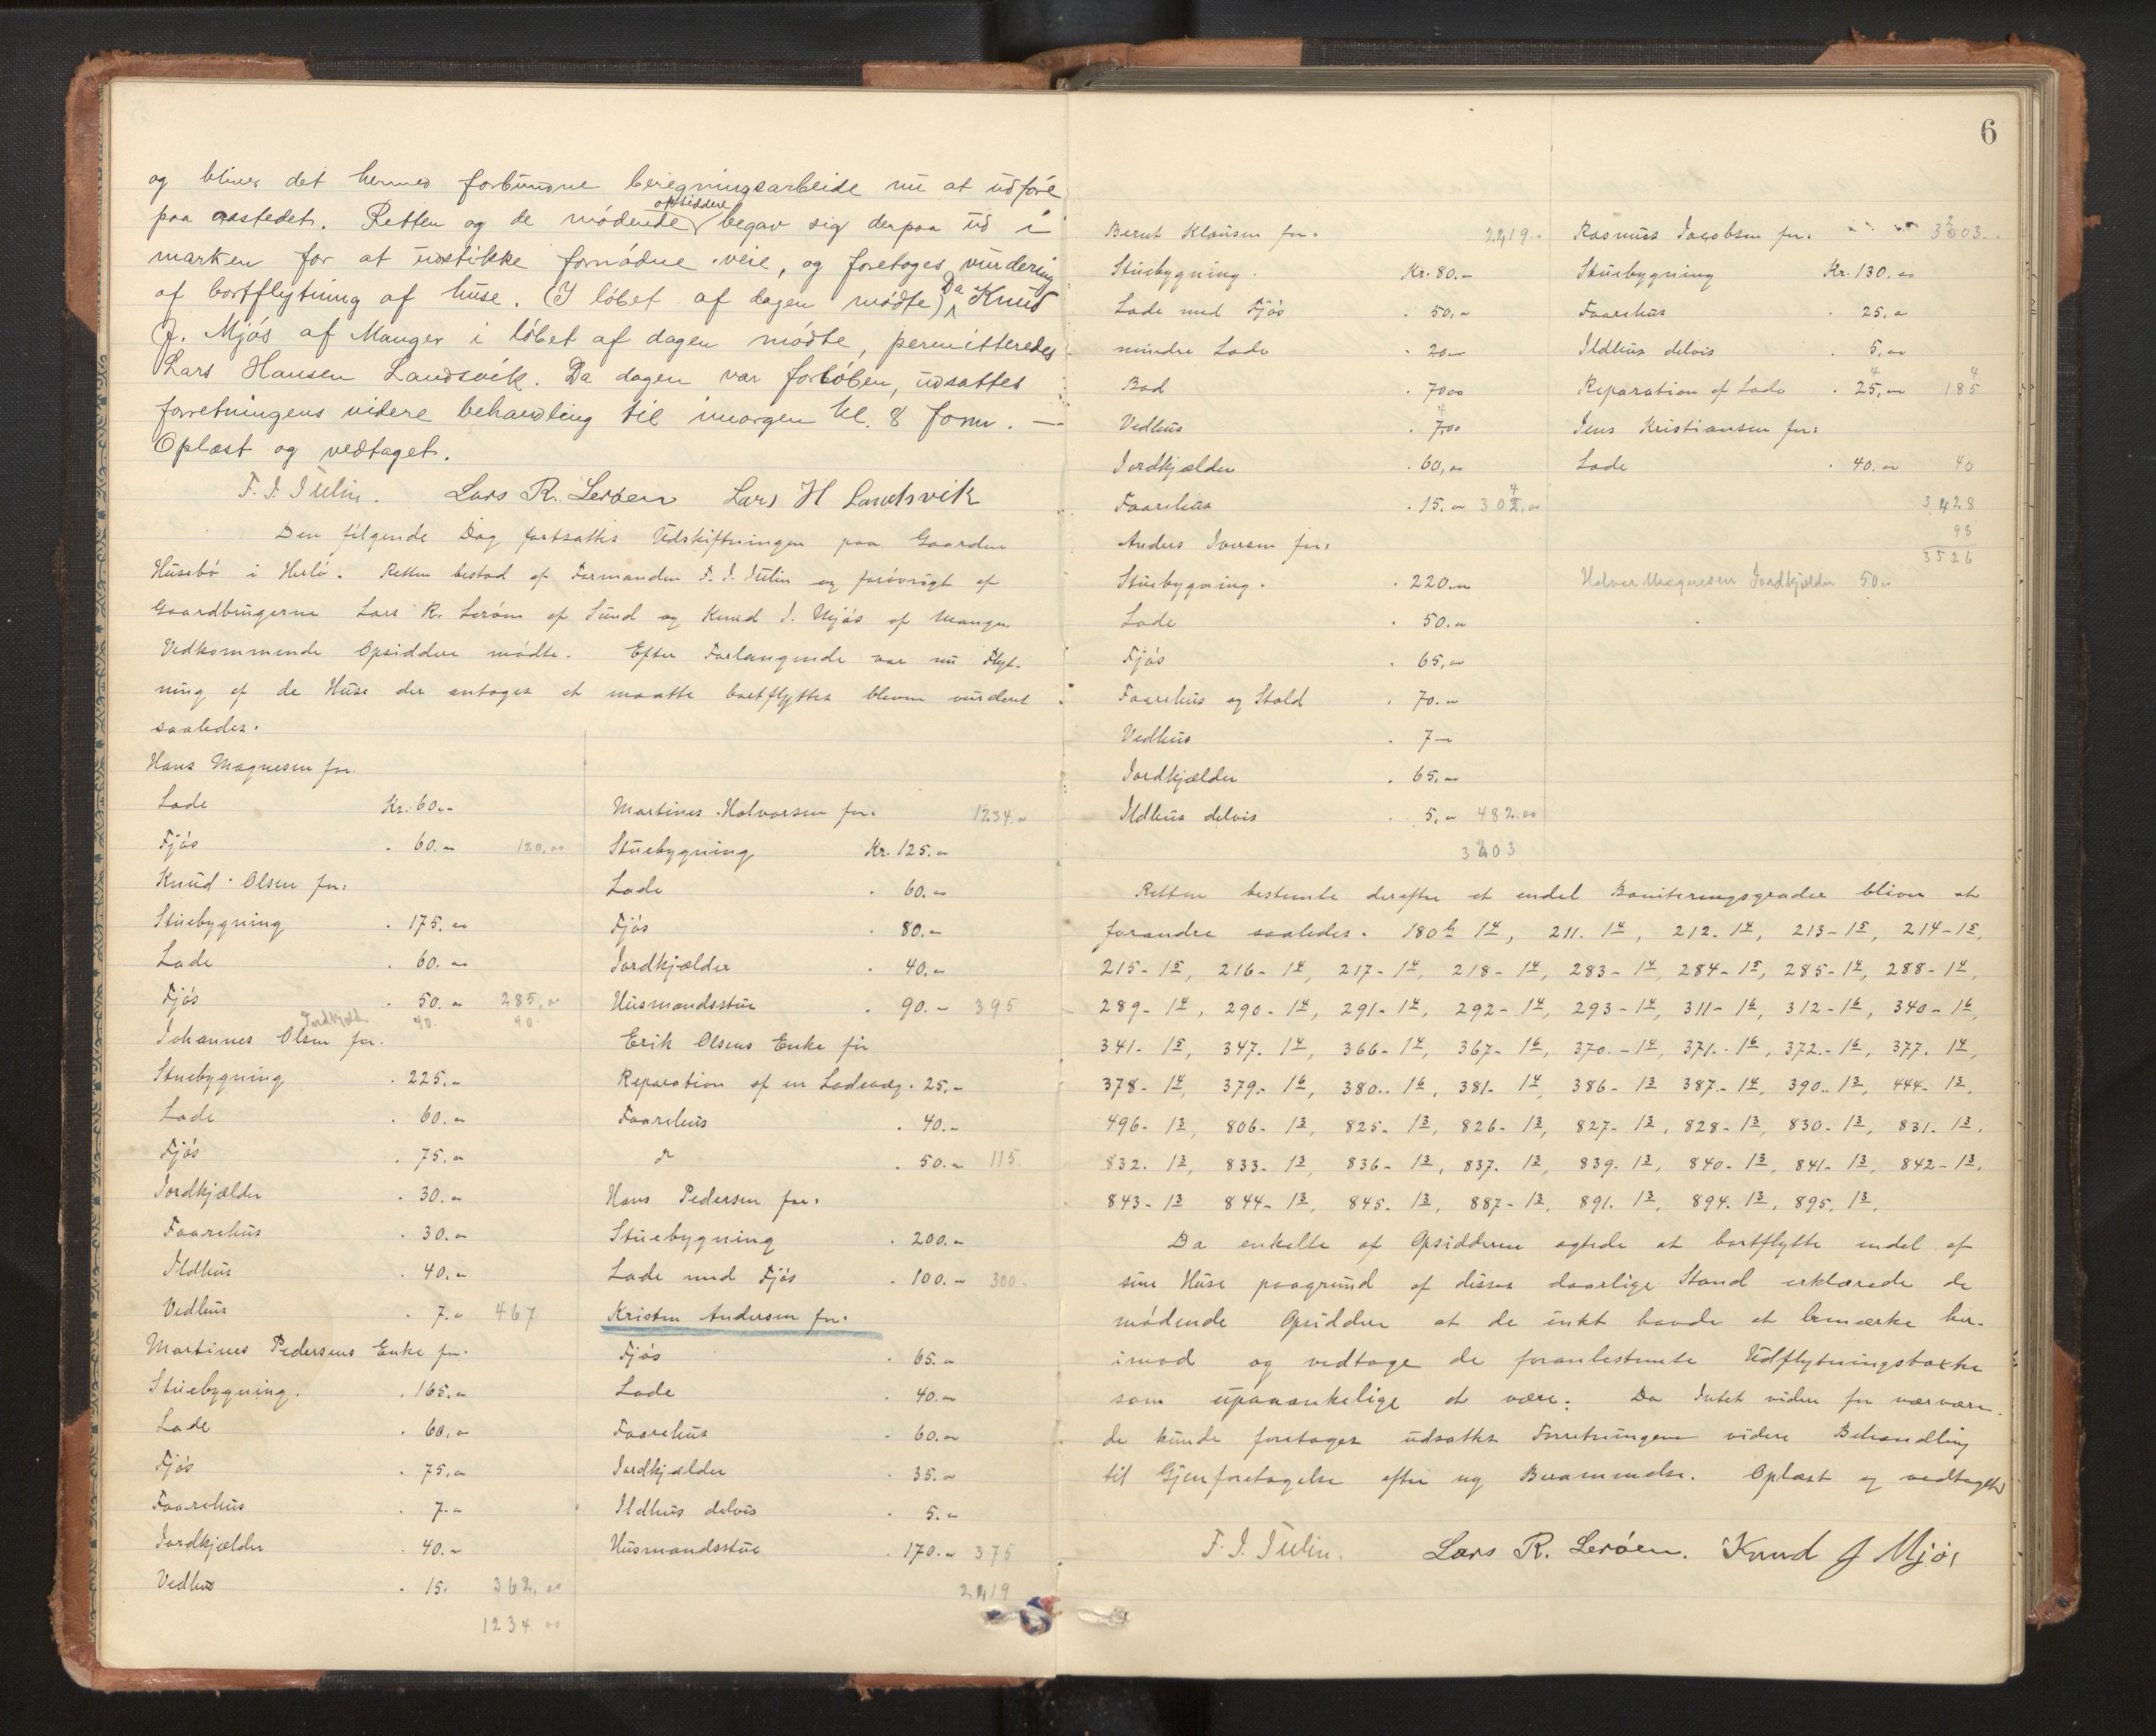 og bliver det hermed forbundne beregningsarbeide nu at udføre
paa aastedet. Retten og de mødende opsiddere begav sig derpaa ud i
marken for at udstikke fornødne veie, og foretages vurdering
af bortflytning af huse. (I løbet af dagen mødte) Da Knud
J. Mjøs af Manger i løbet af dagen mødte, permitteredes
Lars Hansen Landsvik. Da dagen var forløben, udsattes
forretningens videre behandling til imorgen kl. 8 form. —
Oplæst og vedtaget.
F. I. Tulin. Lars R. Lerøen Lars H Landsvik
Den følgende Dag fortsattes Udskiftningen paa Gaarden
Husebø i Herlø. Retten bestod af Formanden F. I. Tulin og forøvrigt af
Gaardbrugerne Lars R. Lerøen af Sund og Knud J. Mjøs af Manger.
Vedkommende Opsiddere mødte. Efter Forlangende var nu Flyt-
ning af de Huse der antages at maatte bortflyttes bleven vurderet
saaledes:
Hans Magnesen for.
Lade Kr. 60.-
Fjøs . 60.- 120,00
Knud Olsen for:
Stuebygning . 175.00
Lade . 60.00
Fjøs . 50.- 285,00
Jordkjeld. 40. 40.
Johannes Olsen for.
Stuebygning . 225.-
Lade . 60.-
Fjøs . 75.-
Jordkjælder . 30.-
Faarehus . 30.-
Ildhus . 40.-
Vedhus . 7.- 467
Martines Pedersens Enke for.
Stuebygning. . 165.-
Lade . 60.-
Fjøs . 75.-
Faarehus . 7.-
Jordkjælder . 40.-
Vedhus . 15. 362.00
1234 00
Martines Halvorsen for. 1234.-
Stuebygning Kr. 125.-
Lade . 60.-
Fjøs . 80.-
Jordkjælder . 40.-
Husmandsstue . 90.- 395
Erik Olsens Enke for
Reparation af en Ladevæg . 25,-
Faarehus . 40.-
do . 50.- 115
Hans Pedersen for.
Stuebygning . 200.-
Lade med Fjøs . 100.- 300.
Kristen Andersen for.
Fjøs . 65.-
Lade . 40.-
Faarehus . 60.-
Jordkjælder . 35.-
Ildhus delvis . 5.-
Husmandsstue . 170.- 375
2419
6
Bernt Klausen for. 2419.-
Stuebygning. Kr. 80.-
Lade med Fjøs . 50.-
mindre Lade . 20.-
Bod . 70 00
Vedhus . 7.00
Jordkjælder . 60,00
Faarehus . 15.- 302,00
Anders Iversen for:
Stuebygning. . 220.-
Lade . 50.-
Fjøs . 65,-
Faarehus og Stald . 70.-
Vedhus . 7-
Jordkjælder . 65.-
Ildhus delvis . 5,- 482.00
3203
Rasmus Jacobsen for. 3203.-
Stuebygning Kr. 130,00
Faarehus . 25.-
Ildhus delvis . 5,00
Reparation af Lade . 25,- 185
Jens Kristiansen for:
Lade . 40.- 40
3428
98
3526
Halvor Magnesen Jordkjælder 50.-
Retten bestemte derefter at endel Boniteringsgrader bliver at
forandre saaledes. 180b 14, 211. 14, 212. 14, 213-15, 214-15,
215-15, 216-14, 217-14, 218-14, 283-14, 284-15, 285-14, 288-14,
289-14, 290-14, 291-14, 292-14, 293-14, 311-16, 312-16, 340-16,
341-15, 347. 14, 366-14, 367-16, 370.-14, 371.-16, 372.-16, 377. 14,
378-14, 379-16, 380.. 16, 381-14, 386-13 387.-14, 390.. 13, 444-13,
496-13, 806-13, 825-13, 826-13, 827-13, 828-13, 830-13, 831. 13,
832. 13, 833-13, 836-13, 837. 13, 839. 13, 840-13, 841-13, 842-13,
843-13 844-13, 845. 13, 887-13, 891. 13, 894. 13, 895. 13,
Da enkelte af Opsidderne agtede at bortflytte endel af
sine Huse paagrund af disses daarlige Stand erklærede de
mødende Opsiddere at de intet havde at bemærke her-
imod og vedtage de foranbestemte Udflytningstaxter
som upaaankelige at være. Da Intet videre for nærværen-
de kunde foretages udsattes Forretningens videre Behandling
til Gjenforetagelse efter ny Berammelse. Oplæst og vedtaget
F. I. Tulin. Lars R. Lerøen. Knud J Mjøs